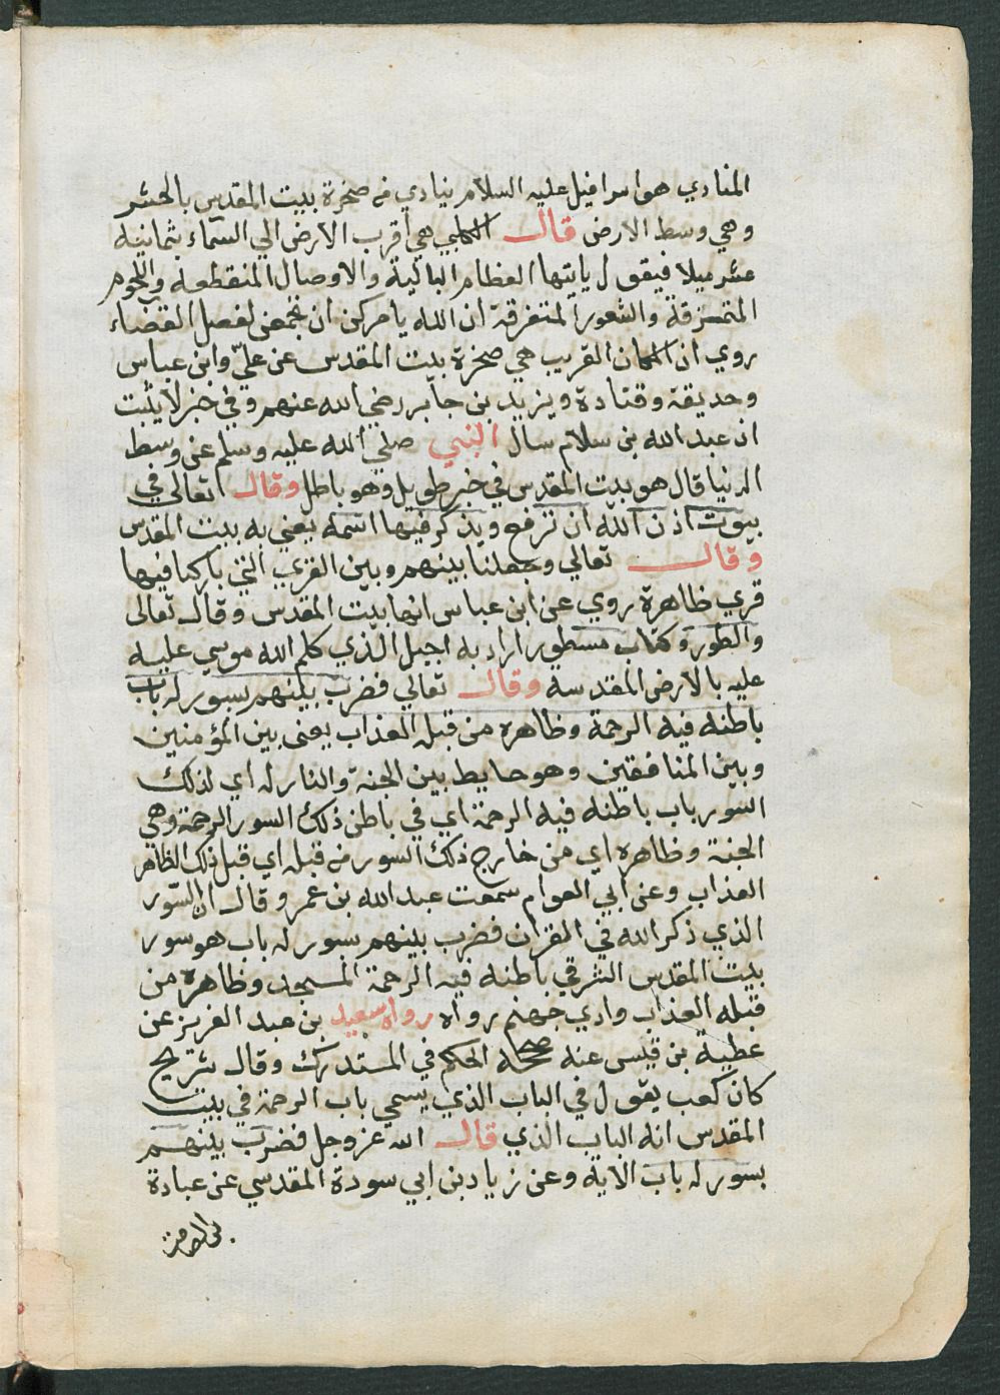 المنادي هو اسرافيل عليه السلام ينادي من صخرة بيت المقدس بالحشر
وهي وسط الارض قال الكلبي هي اقرب الارض الي السماء بثمانية
عشر ميلا فيقول ايتها العظام البالية والاوصال المنقطعة واللحوم
المتمزقة والشعور المتفرقة ان الله يامركن ان تجمعن لفصل القضاء
روي ان المكان القريب هي صخرة بيت المقدس عن علي وابن عباس
وحديقة وقتادة ويزيد بن جابر رضي الله عنهم وفي خبر لا يثبت
ان عبد الله بن سلام سال النبي صلي الله عليه وسلم عن وسط
الدنيا قال هو بيت المقدس في خبر طويل وهو باطل وقال تعالى في
بيوت اذن الله ان ترفع ويذكر فيها اسمه يعني به بيت المقدس
وقال تعالي وجعلنا بينهم وبين القري التي باركنا فيها
قري ظاهرة روي عن ابن عباس انها بيت المقدس وقال تعالى
والطور وكتاب مسطور اراد به اجبل الذي كلم الله موسي عليه
عليه بالارض المقدسة وقال تعالي فضرب بينهم بسور له باب
باطنه فيه الرحمة وظاهره من قبله العذاب يعني بين المؤمنين
وبين المنافقين وهو حايط بين الجنة والنار له اي لذلك
السور باب باطنه فيه الرحمة اي في باطن ذلك السور الرحمة وهي
الجنة وظاهره اي من خارج ذلك السور من قبله اي قبل ذلك الظاهر
العذاب وعن ابي العوام سمعت عبد الله بن عمر وقال ان السور
الذي ذكر الله في القران فضرب بينهم بسور له باب هو سور
بيت المقدس الشرقي باطنه فيه الرحمة المسجد وظاهره من
قبله العذاب وادي جهنم رواه رواه سعيد بن عبد العزيز عن
عطية بن قيس عنه صححه الحكم في المستدرك وقال شريح
كان كعب يقول في الباب الذي يسمي باب الرحمة في بيت
المقدس انه الباب الذي قال الله عز وجل فضرب بينهم
بسور له باب الاية وعن زياد بن ابي سودة المقدسي عن عبادة